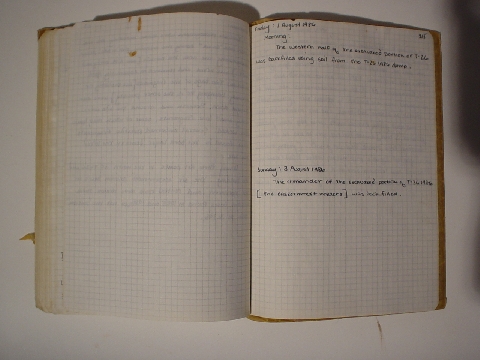 Friday : 1 August 1986
Morning
The western half of the excavated portion of T-26
was backfilled using soil from the T-26 1986 dump.
Sunday : 3 August 1986
The remainder of the excavated portion of T-26 1986
[ the easternmost meters ] was backfilled.